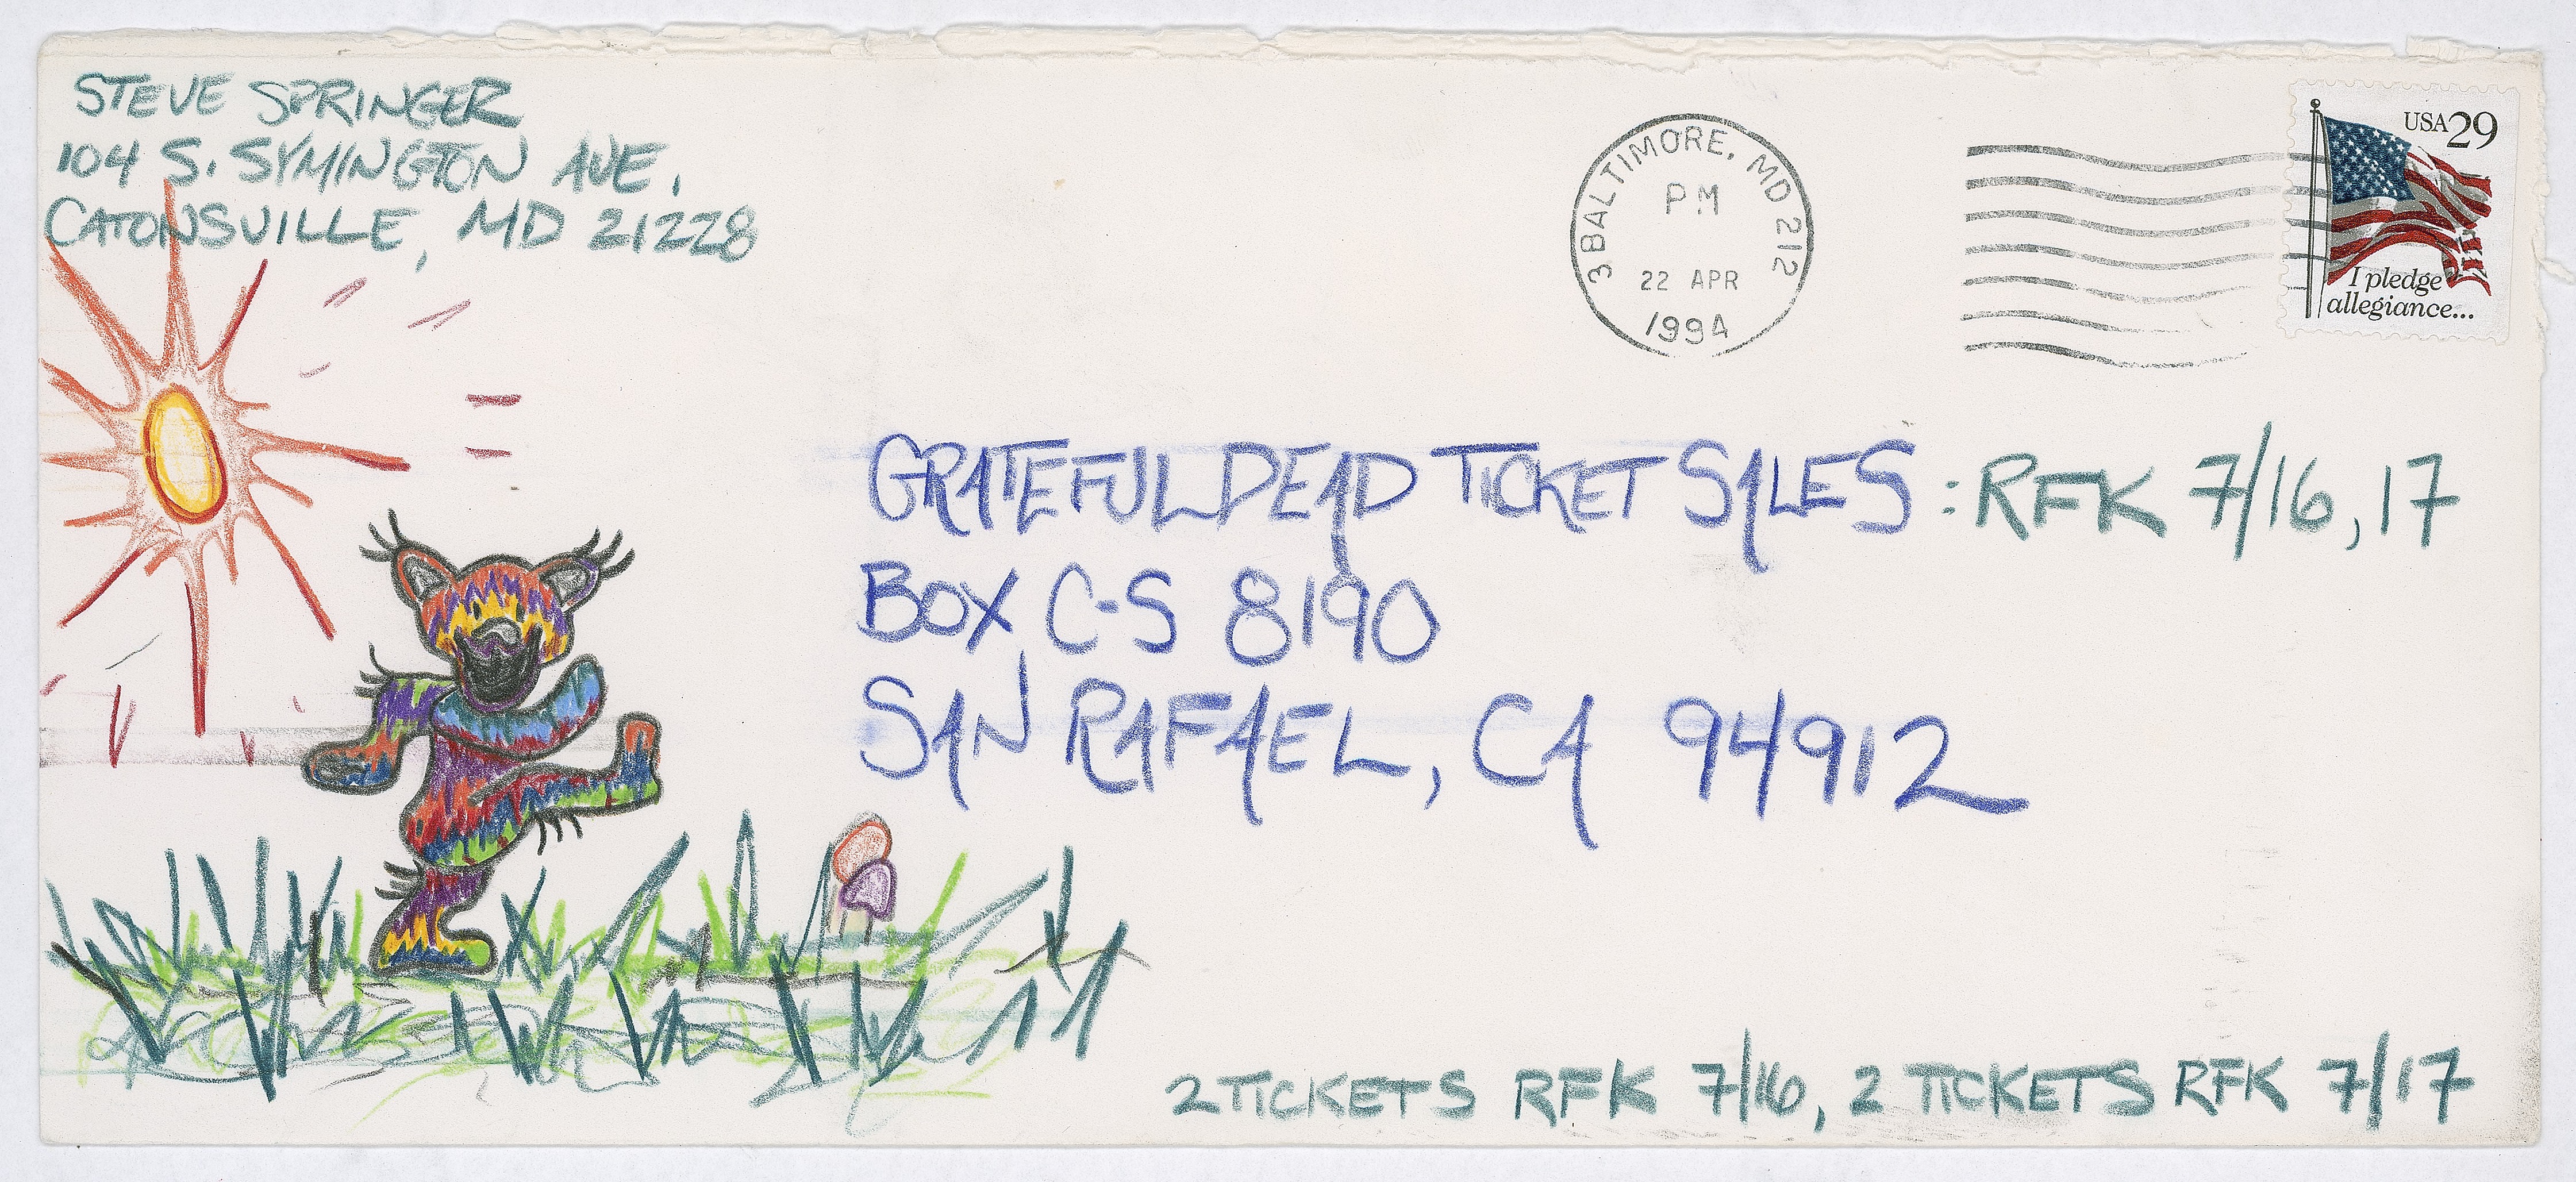 STEVE SPRINGER
104 S. SYMINGTON AVE.
CATONSVILLE, MD 21228
3 BALTIMORE, MD 212
PM
22 APR
1994
USA 29
I pledge
allegiance...
GRATEFUL DEAD TICKET SALES : RFK 7/16, 17
BOX C-S 8190
SAN RAFAEL, CA 94912
2 TICKETS RFK 7/16, 2 TICKETS RFK 7/17